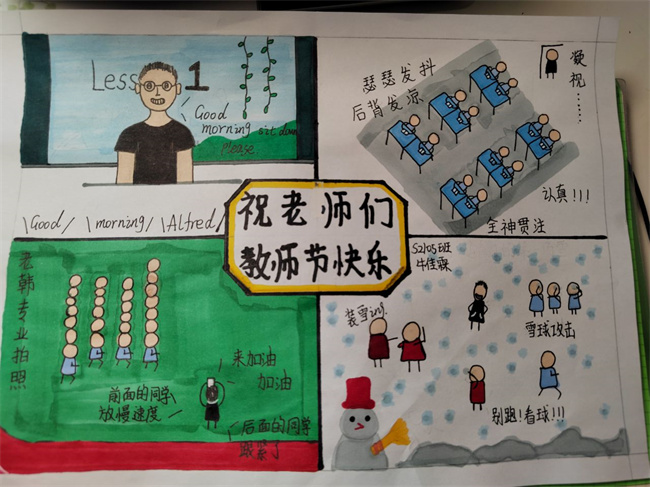 Less 1
Good
morning sit down
Please
\Good/ \morning/ \Alfred/
瑟瑟发抖
后背发凉
凝视……
认真!!!
全神贯注
祝老师们
教师节快乐
老韩专业拍照
来加油
加油
前面的同学
放慢速度
后面的同学
跟紧了
S2105班
牛佳霖
装雪ing.
雪球攻击
别跑!看球!!!